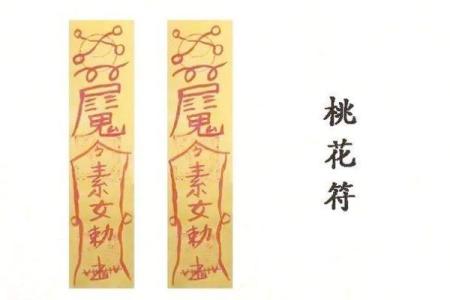 今素女勅
今素女勅
桃花符